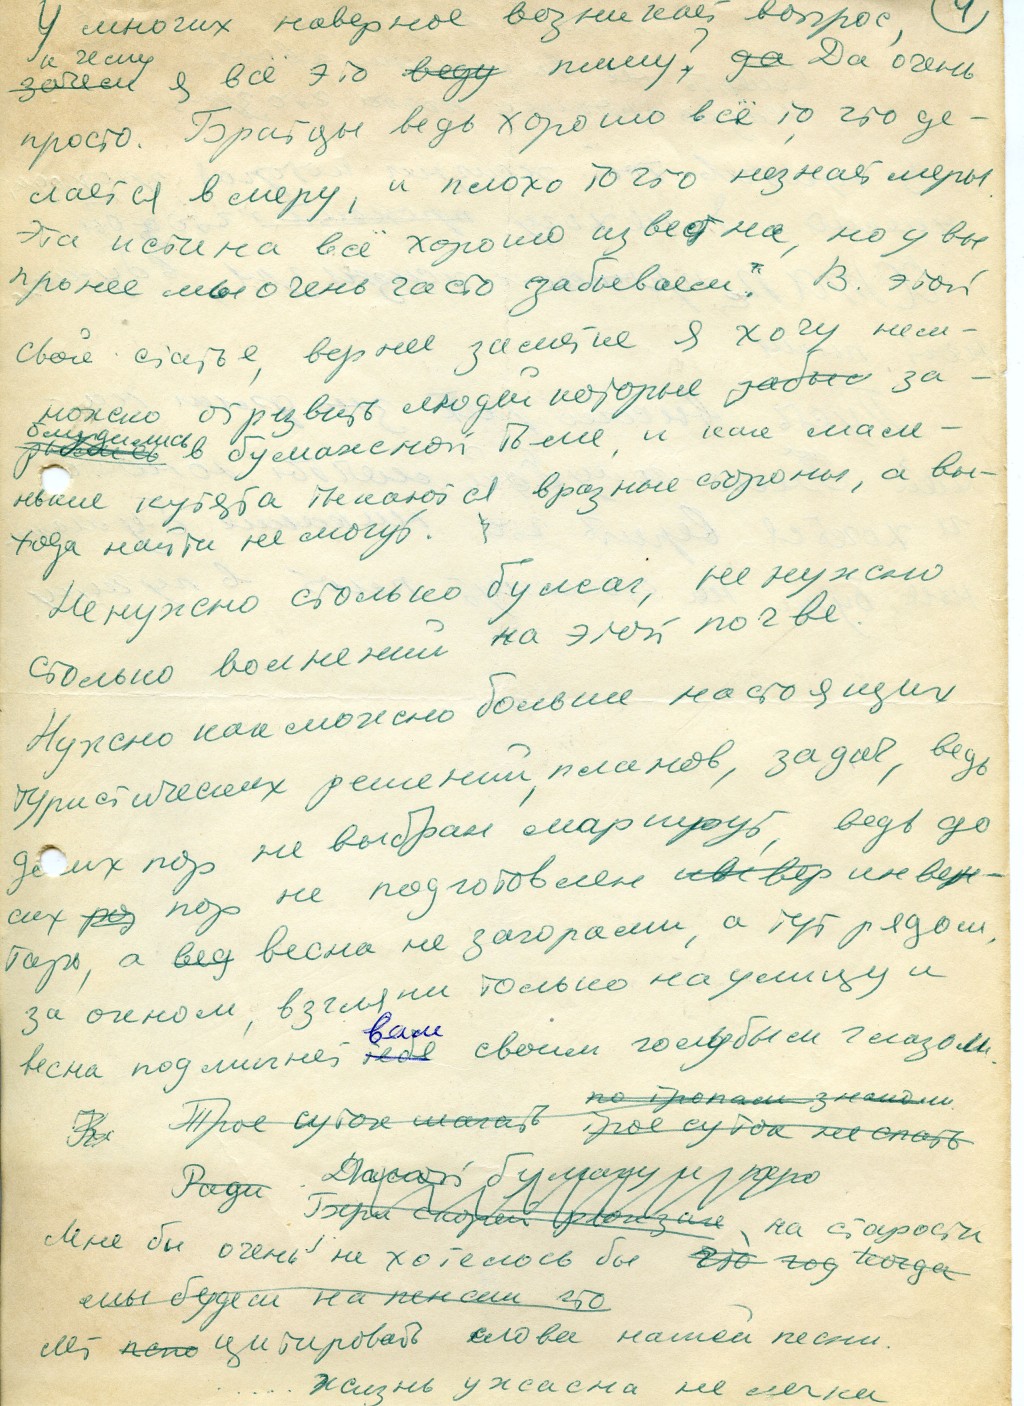 У многих наверное возникает вопрос, 4
к чему
зачем я всё это веду пишу? да Да очень
просто. Братцы ведь хорошо всё то, что де-
лается в меру, и плохо то что незнает меры
Эта истина всё хорошо известна, но увы
про нее мы очень часто забываем". В. этой
свой статье, вернее заметке я хочу нем-
ножко отрезвить людей которые забыл за-
блудились
рылись в бумажной тьме, и как мале-
нькие кутята тыкаются вразные стороны, а вы-
хода найти не могут.
Ненужно столько бумаг, не нужно
столько волнений на этой почве.
Нужно как можно больше настоящих
туристических решений, планов, задач, ведь
до сих пор не выбран маршрут, ведь до
сих пор не подготовлен инвен-
тарь, а вед весна не загорами, а тут рядом,
за окном, взгляни только на улицу и
вам
весна подмигнет тебе своим голубым глазом.
по тропам знаком
Трое суток шагать трое суток не спать
Ради Достать бумагу и перо
Бери скорей рюкзак на старости
Мне бы очень не хотелось бы что год когда
мы будем на пенсии что
лет цитировать слова нашей песни.
..... жизнь ужасна не легка